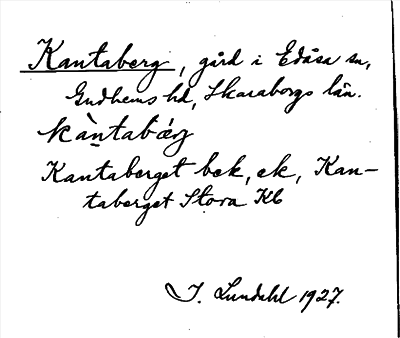 Kantaberg, gård i Edåsa sn,
Gudhems hd, Skaraborgs län.
kàntabærj
Kantaberget bek, ek, Kan-
taberget Stora Kb
J. Lundahl 1927.